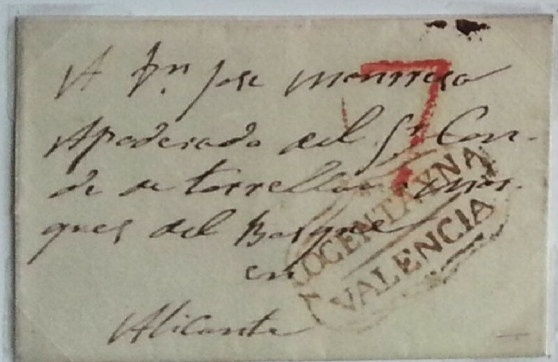 A Dn Jose Monserrat
Apoderado del Sr Con-
de de torrellano y Mar-
ques del Bosque
en
Alicante
7
COCENTAYNA
VALENCIA